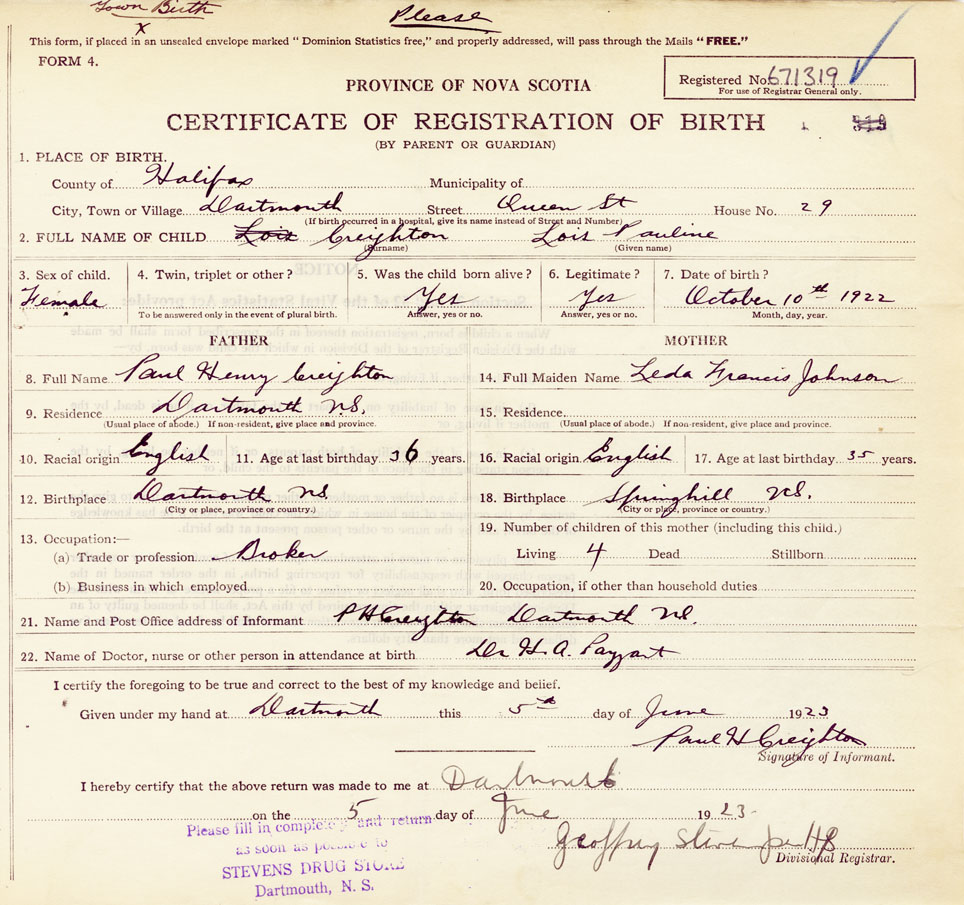 Town Birth
Please
x
This form, if placed in an unsealed envelope marked “ Dominion Statistics free,” and properly addressed, will pass through the Mails “FREE.”
FORM 4.
Registered No. 671319
For use of Registrar General only.
PROVINCE OF NOVA SCOTIA
CERTIFICATE OF REGISTRATION OF BIRTH
(BY PARENT OR GUARDIAN)
1. PLACE OF BIRTH.
County of Halifax Municipality of
City, Town or Village Dartmouth Street Queen St House No. 29
(If birth occurred in a hospital, give its name instead of Street and Number)
2. FULL NAME OF CHILD Lois Creighton Lois Pauline
(Surname) (Given name)
3. Sex of child. 4. Twin, triplet or other? 5. Was the child born alive? 6. Legitimate? 7. Date of birth?
Female Yes Yes October 10th 1922
To be answered only in the event of plural birth. Answer, yes or no. Answer, yes or no. Month, day, year.
FATHER MOTHER
8. Full Name Paul Henry Creighton 14. Full Maiden Name Leda Francis Johnson
9. Residence Dartmouth N.S. 15. Residence.
(Usual place of abode.) If non-resident, give place and province. (Usual place of abode.) If non-resident, give place and province.
10. Racial origin English 11. Age at last birthday 36 years. 16. Racial origin English 17. Age at last birthday 35 years.
12. Birthplace Dartmouth N.S. 18. Birthplace Springhill N.S.
(City or place, province or country.) (City or place, province or country.)
19. Number of children of this mother (including this child.)
13. Occupation:—
(a) Trade or profession Broker Living 4 Dead Stillborn
(b) Business in which employed 20. Occupation, if other than household duties
21. Name and Post Office address of Informant P H Creighton Dartmouth N.S.
22. Name of Doctor, nurse or other person in attendance at birth Dr H. A. Payzant
I certify the foregoing to be true and correct to the best of my knowledge and belief.
Given under my hand at Dartmouth this 5th day of June 1923
Paul H Creighton
Signature of Informant.
I hereby certify that the above return was made to me at Dartmouth
on the 5 day of June 1923
Geoffrey Stevens
Divisional Registrar.
Please fill in complete and return
as soon as possible to
STEVENS DRUG STORE
Dartmouth, N. S.